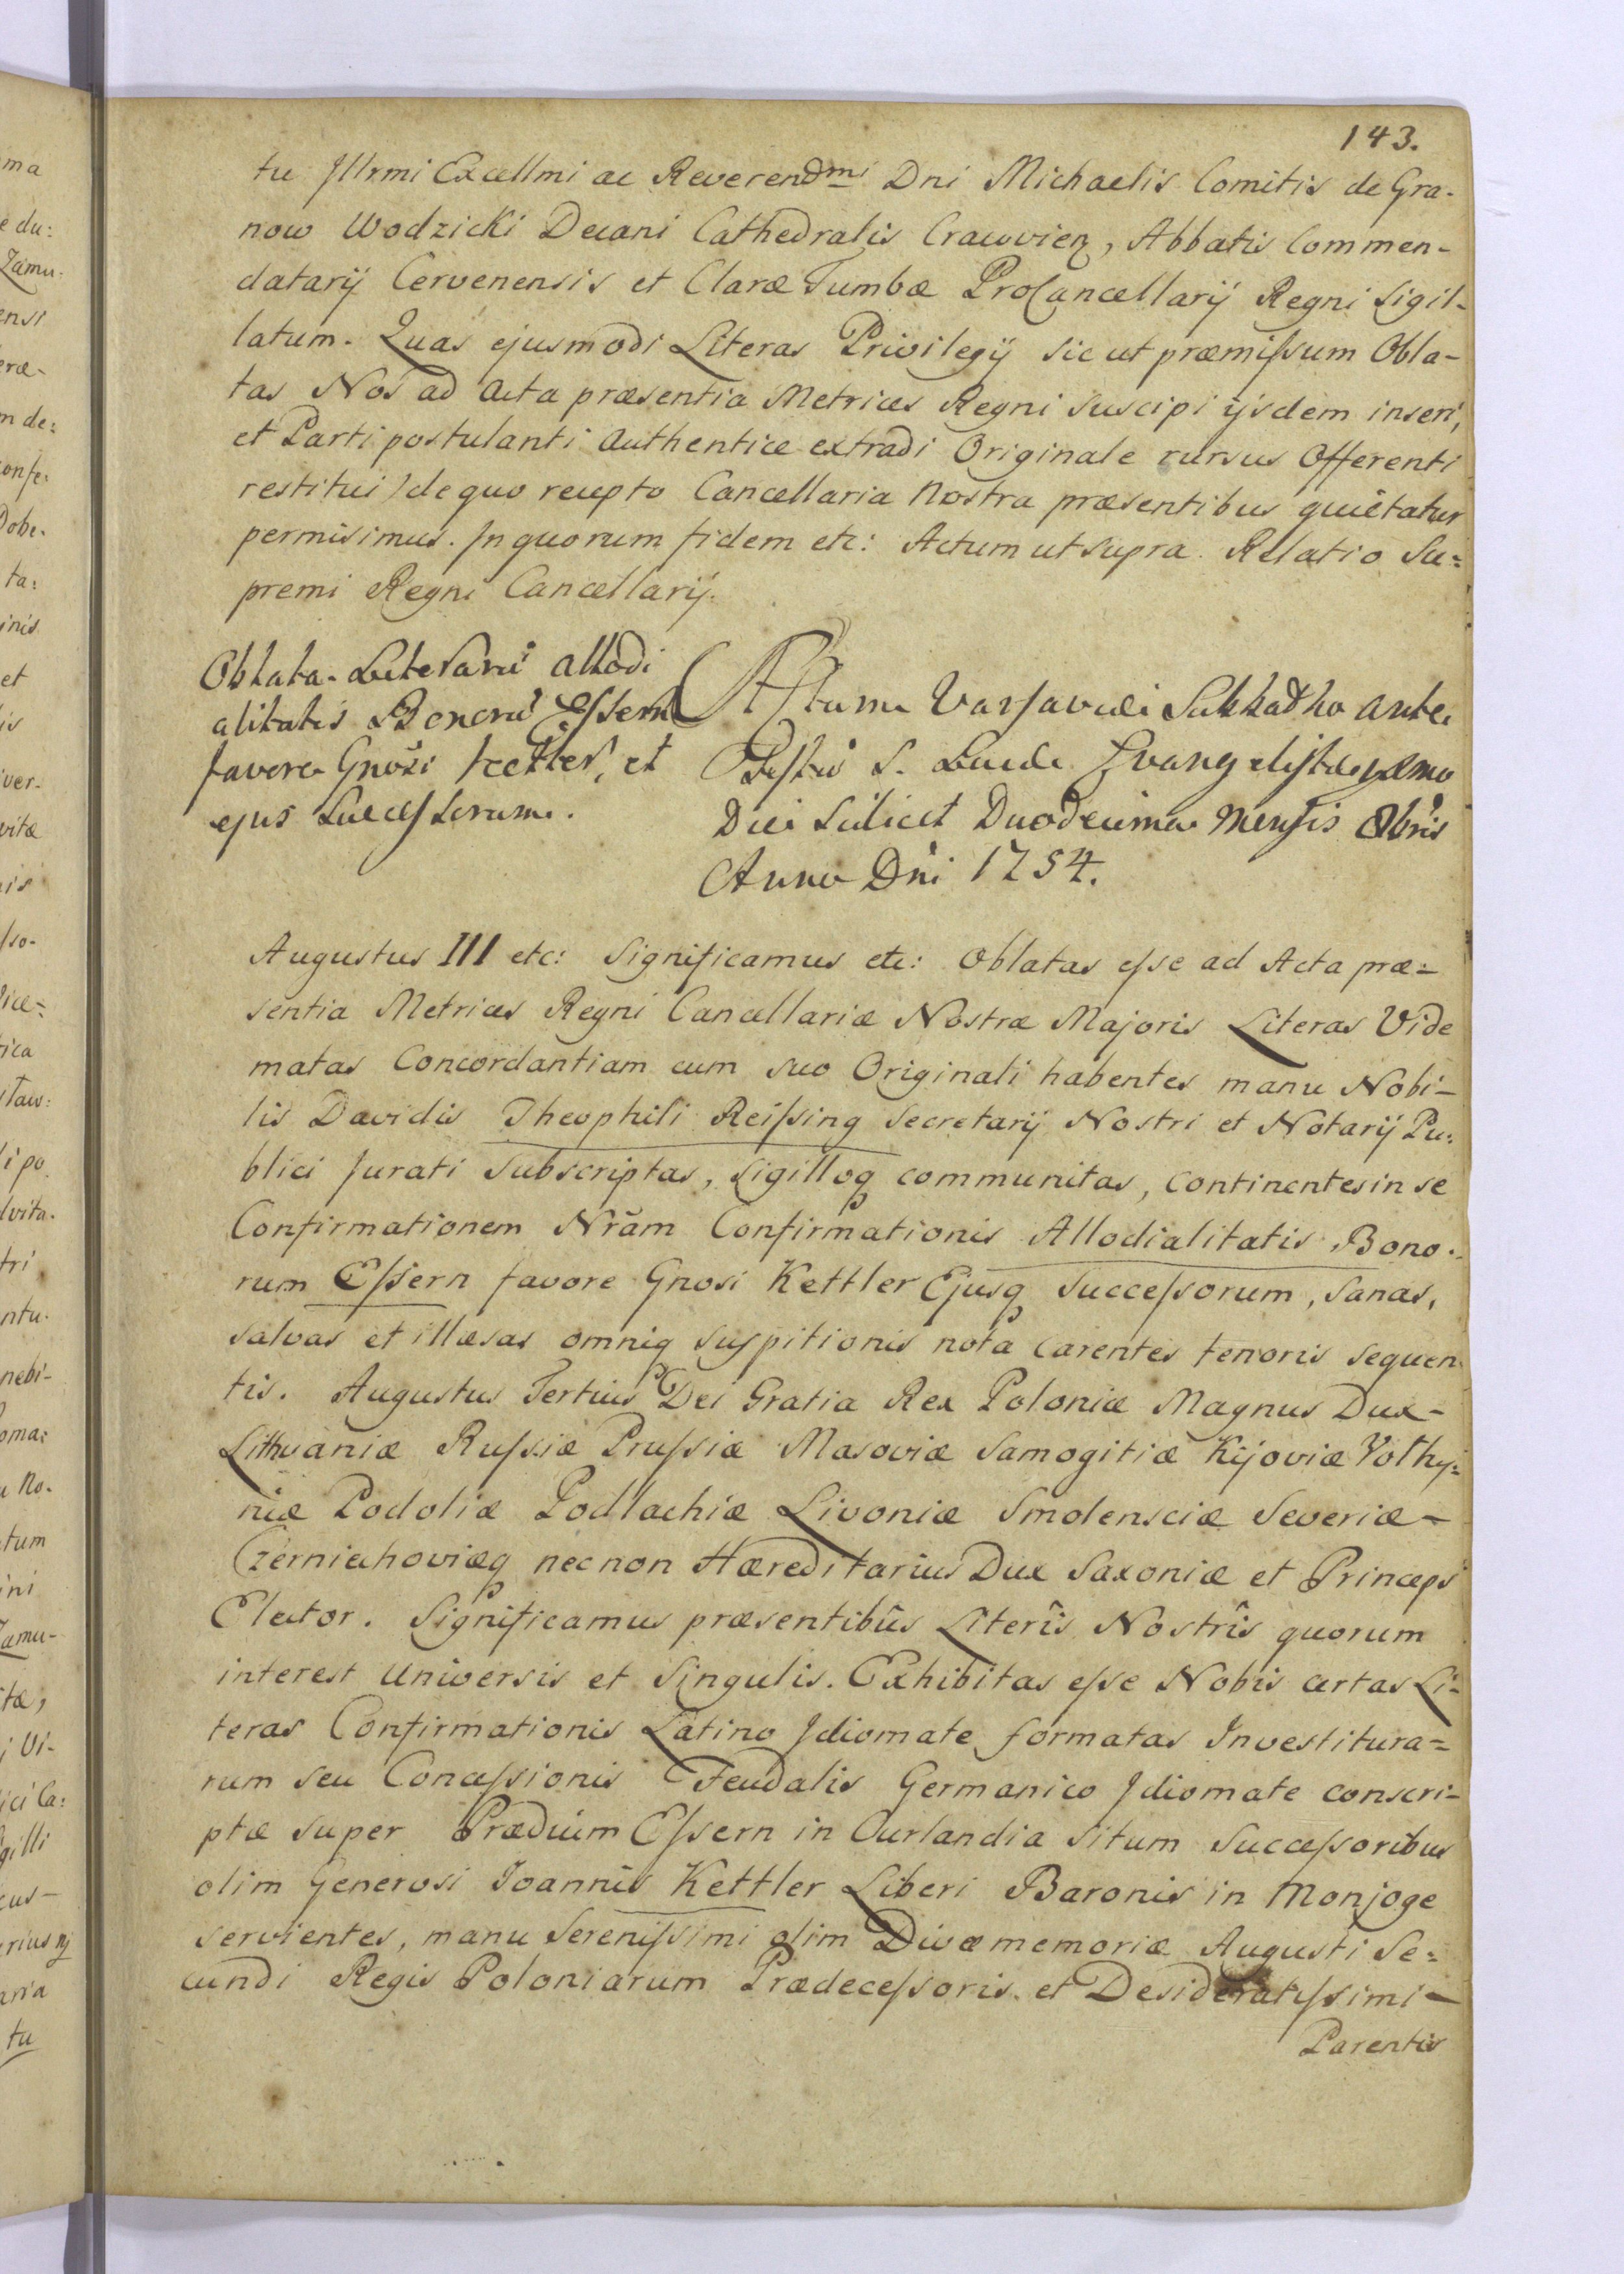 143.
tu Jllrmi Excellmi ac Reverendmi Dni Michaelis Comitis de Gra-
now Wodzicki Decani Cathedralis Cracovien, Abbatis Commen-
datarij Cervenensis et Claræ Tumbæ ProCancellarij Regni Sigil-
latum. Quas ejusmodi Literas Privilegij sic ut præmissum Obla-
tas Nos ad Acta præsentia Metrices Regni suscipi ijsdem inseri,
et Parti postulanti authentice extradi Originale rursus Offerenti
restitui /de quo recepto Cancellaria Nostra præsentibus quietatur
permisimus. Jn quorum fidem etc: Actum ut supra. Relatio Su=
premi Regni Cancellarij.
Oblata Literarū Allodi
alitatis Bonorū Essern
favore Gnosi Kettler, et
ejus Successorum.
Actum Varsaviæ Sabbatho ante
Festū S. Lucæ Evangelistæ proximo
Die Scilicet Duodecima Mensis Obris
Anno Dni 1754.
Augustus III etc: Significamus etc: Oblatas esse ad Acta præ=
sentia Metrices Regni Cancellariæ Nostræ Majoris Literas Vide
matas Concordantiam cum suo Originali habentes manu Nobi-
lis Davidis Theophili Reissing Secretarij Nostri et Notarij Pu:
blici Jurati Subscriptas, Sigilloq communitas, continentes in se
Confirmationem Nrām Confirmationis Allodialitatis Bono-
rum Essern favore Gnosi Kettler Ejusq Successorum, Sanas,
salvas et illæsas omniq suspitionis nota carentes tenoris sequen
tis. Augustus Tertius Dei Gratia Rex Poloniæ Magnus Dux-
Lithvaniæ Russiæ Prussiæ Masoviæ Samogitiæ Kijoviæ Volhy=
niæ Podoliæ Podlachiæ Livoniæ Smolensciæ Severiæ-
Czerniechoviæq necnon Hæreditarius Dux Saxoniæ et Princeps
Elector. Significamus præsentibus Literis Nostris quorum
interest Universis et Singulis. Exhibitas esse Nobis certas Li-
teras Confirmationis Latino Jdiomate formatas Investitura=
rum seu Concessionis Feudalis Germanico Jdiomate conscri-
ptæ super Prædium Essern in Curlandia Situm Successoribus
olim Generosi Joannis Kettler Liberi Baronis in Monjoge
servientes, manu Serenissimi olim Divæ memoriæ Augusti Se=
cundi Regis Poloniarum Prædecessoris et Desideratissimi-
Parentis